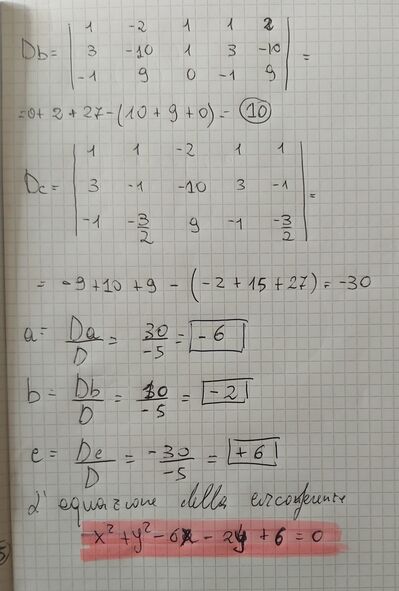 1 -2 1 1 2
Db = | 3 -10 1 3 -10 | =
-1 9 0 -1 9
= 0 + 2 + 27 - (10 + 9 + 0) = 10
1 1 -2 1 1
Dc = | 3 -1 -10 3 -1 | =
-1 -3/2 9 -1 -3/2
= -9 + 10 + 9 - (-2 + 15 + 27) = -30
a = Da/D = 30/-5 = -6
b = Db/D = 10/-5 = -2
c = Dc/D = -30/-5 = +6
L'equazione della circonferenza
x² + y² - 6x - 2y + 6 = 0